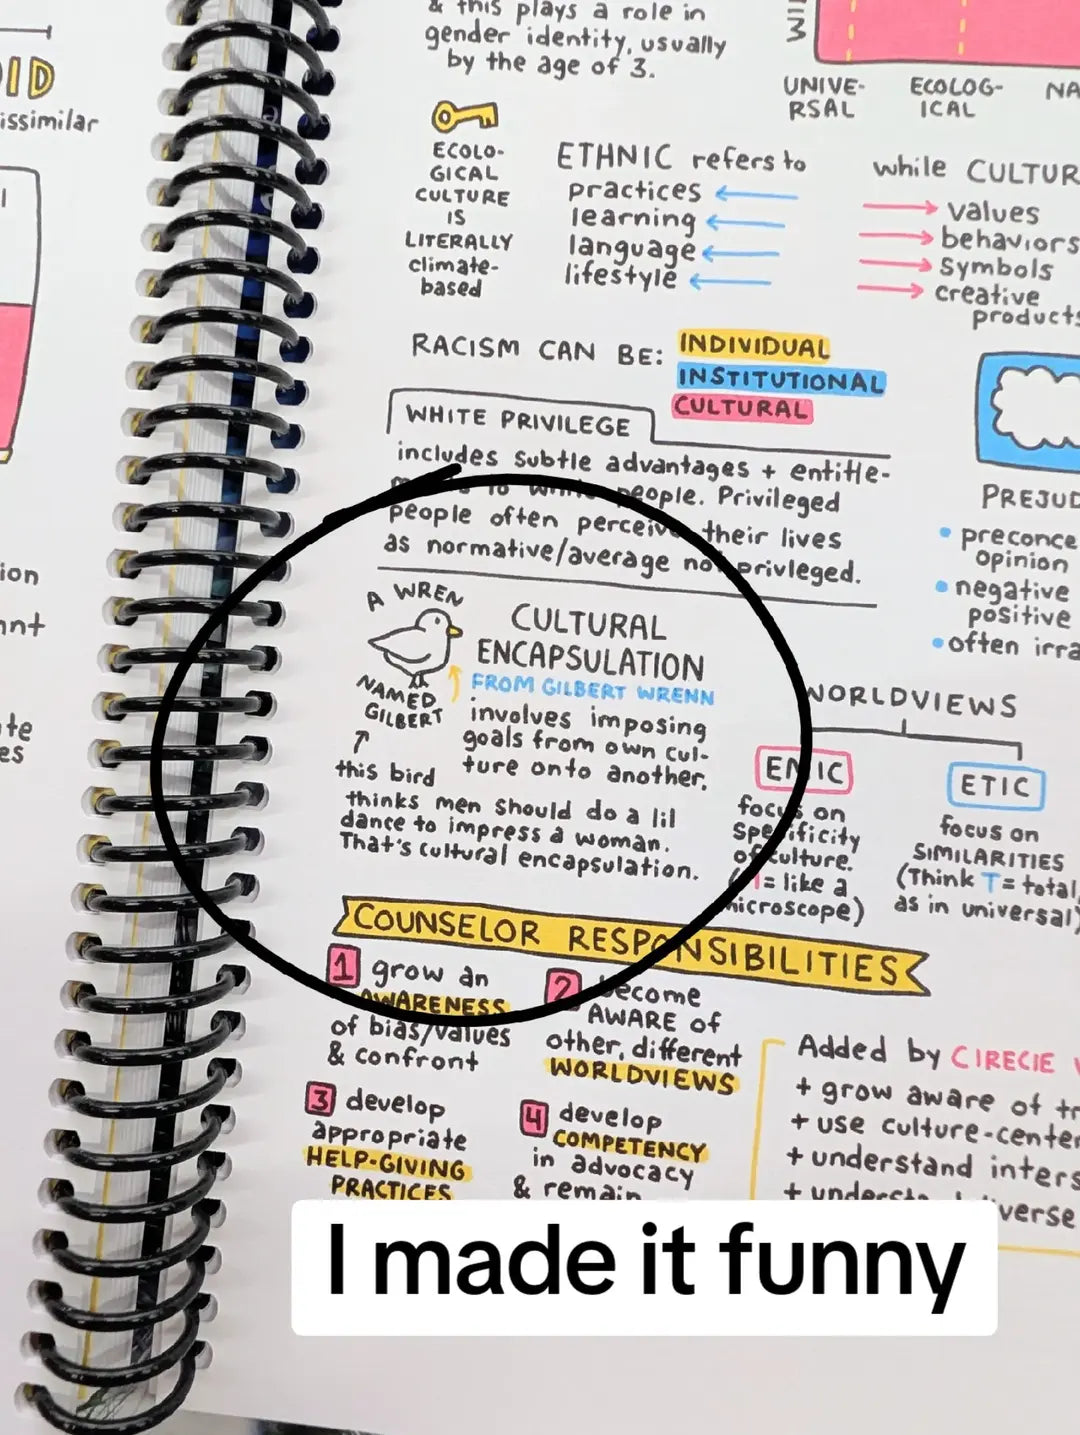 & this plays a role in
gender identity, usually
by the age of 3.
UNIVE-
RSAL
ECOLOG-
ICAL
NA
ID
issimilar
ECOLO-
GICAL
CULTURE
IS
LITERALLY
climate-
based
ETHNIC refers to
practices
learning
language
lifestyle
while CULTUR
values
behaviors
symbols
creative
products
RACISM CAN BE:
INDIVIDUAL
INSTITUTIONAL
CULTURAL
WHITE PRIVILEGE
includes subtle advantages + entitle-
to white people. Privileged
people often perceive their lives
as normative/average not privleged.
PREJUD
preconce
opinion
negative
positive
often irra
ion
nt
te
es
A WREN
NAMED
GILBERT
CULTURAL
ENCAPSULATION
FROM GILBERT WRENN
involves imposing
goals from own cul-
ture onto another.
this bird
thinks men should do a lil
dance to impress a woman.
That's cultural encapsulation.
WORLDVIEWS
EMIC
focus on
specificity
of culture.
= like a
microscope)
ETIC
focus on
SIMILARITIES
(Think T = total,
as in universal)
COUNSELOR RESPONSIBILITIES
1 grow an
AWARENESS
of bias/values
& confront
2 become
AWARE of
other, different
WORLDVIEWS
3 develop
appropriate
HELP-GIVING
PRACTICES
4 develop
COMPETENCY
in advocacy
& remain
Added by CIRECIE
+ grow aware of tr
+ use culture-center
+ understand inters
+ underst
verse
I made it funny